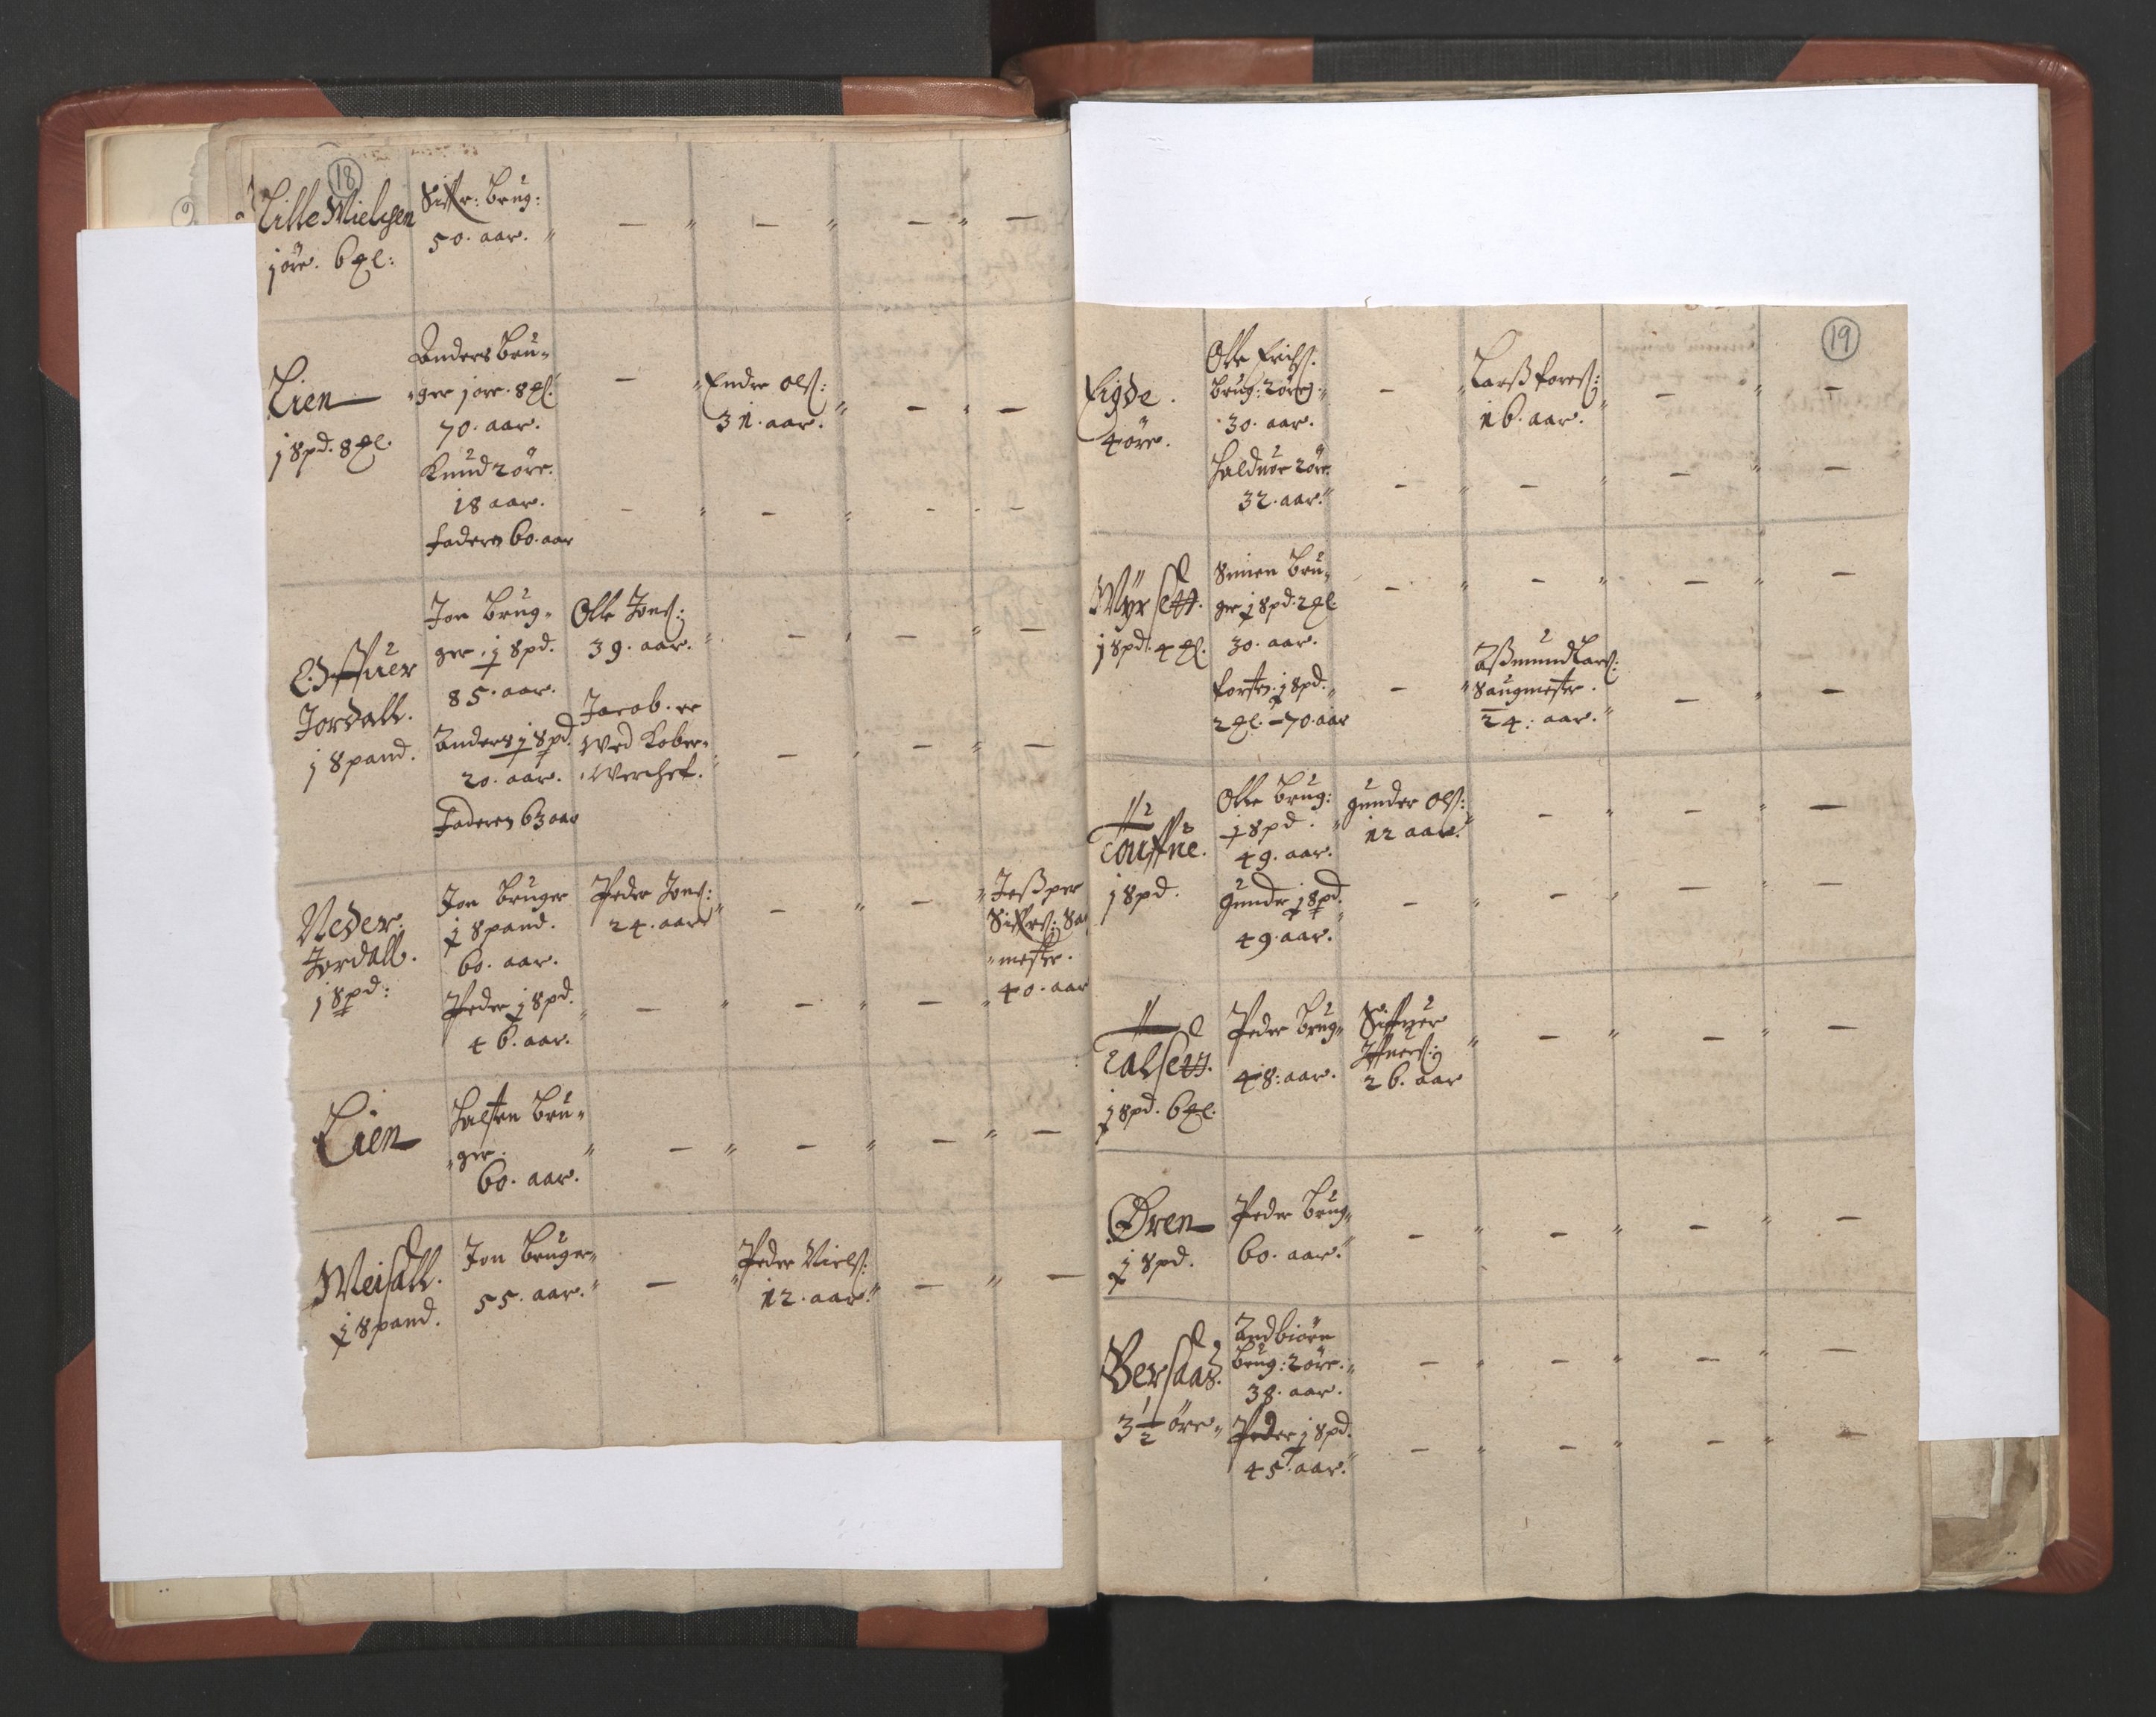 18
Lille Mielchen
1 öre. 6 ℔l:
Siffr: brug:
50. aar.
Lien
1 Spd. 8 ℔l.
Anders bru-
ger 1 öre. 8 ℔l.
70. aar.
Knud 2 öre.
18 aar.
faderen 60. aar
Endre Olß:
31. aar.
Offuer
Jordall.
1 Spand.
Jon brug-
ger. ½ Spd.
85. aar.
Anders ½ Spd.
20. aar.
Faderen 63 aar
Olle Jonß:
39. aar.
Jacob. er
Wed Kober-
Werchet.
Neder:
Jordall.
1 Spd:
Jon bruger
½ Spand.
60. aar.
Peder ½ Spd.
46. aar.
Peder Jonß:
24. aar
Jeßper
Siffreß: Sa
mester.
40. aar
Lien
Halsten bru-
ger.
60. aar.
Meisall.
½ Spand.
Jon bruger
55. aar.
Peder Nielß:
12. aar.
19
Eigde.
4 öre.
Olle Erichß:
brug: 2 öre
30. aar.
Halduor 2 öre
32. aar.
Larß Toreß:
16. aar.
Myrsett.
1 Spd. 4 ℔l.
Simen bru-
ger ½ Spd. 2 ℔l.
30. aar.
Torsten ½ Spd.
2 ℔l. - 70. aar
Aßmund Larß:
Saugmester.
24: aar.
Touffue.
1 Spd.
Olle brug:
½ Spd.
49. aar.
Gunder ½ Spd.
49. aar.
Gunder Olß:
12 aar.
Talsett.
½ Spd. 6 ℔l.
Peder brug
48: aar.
Siffuer
Iffuerß:
26. aar
Øren
½ Spd.
Peder brug
60. aar.
Bersaas.
3 1/2 öre
Andbiörn
brug: 2 öre.
38. aar.
Peder ½ Spd.
45. aar.